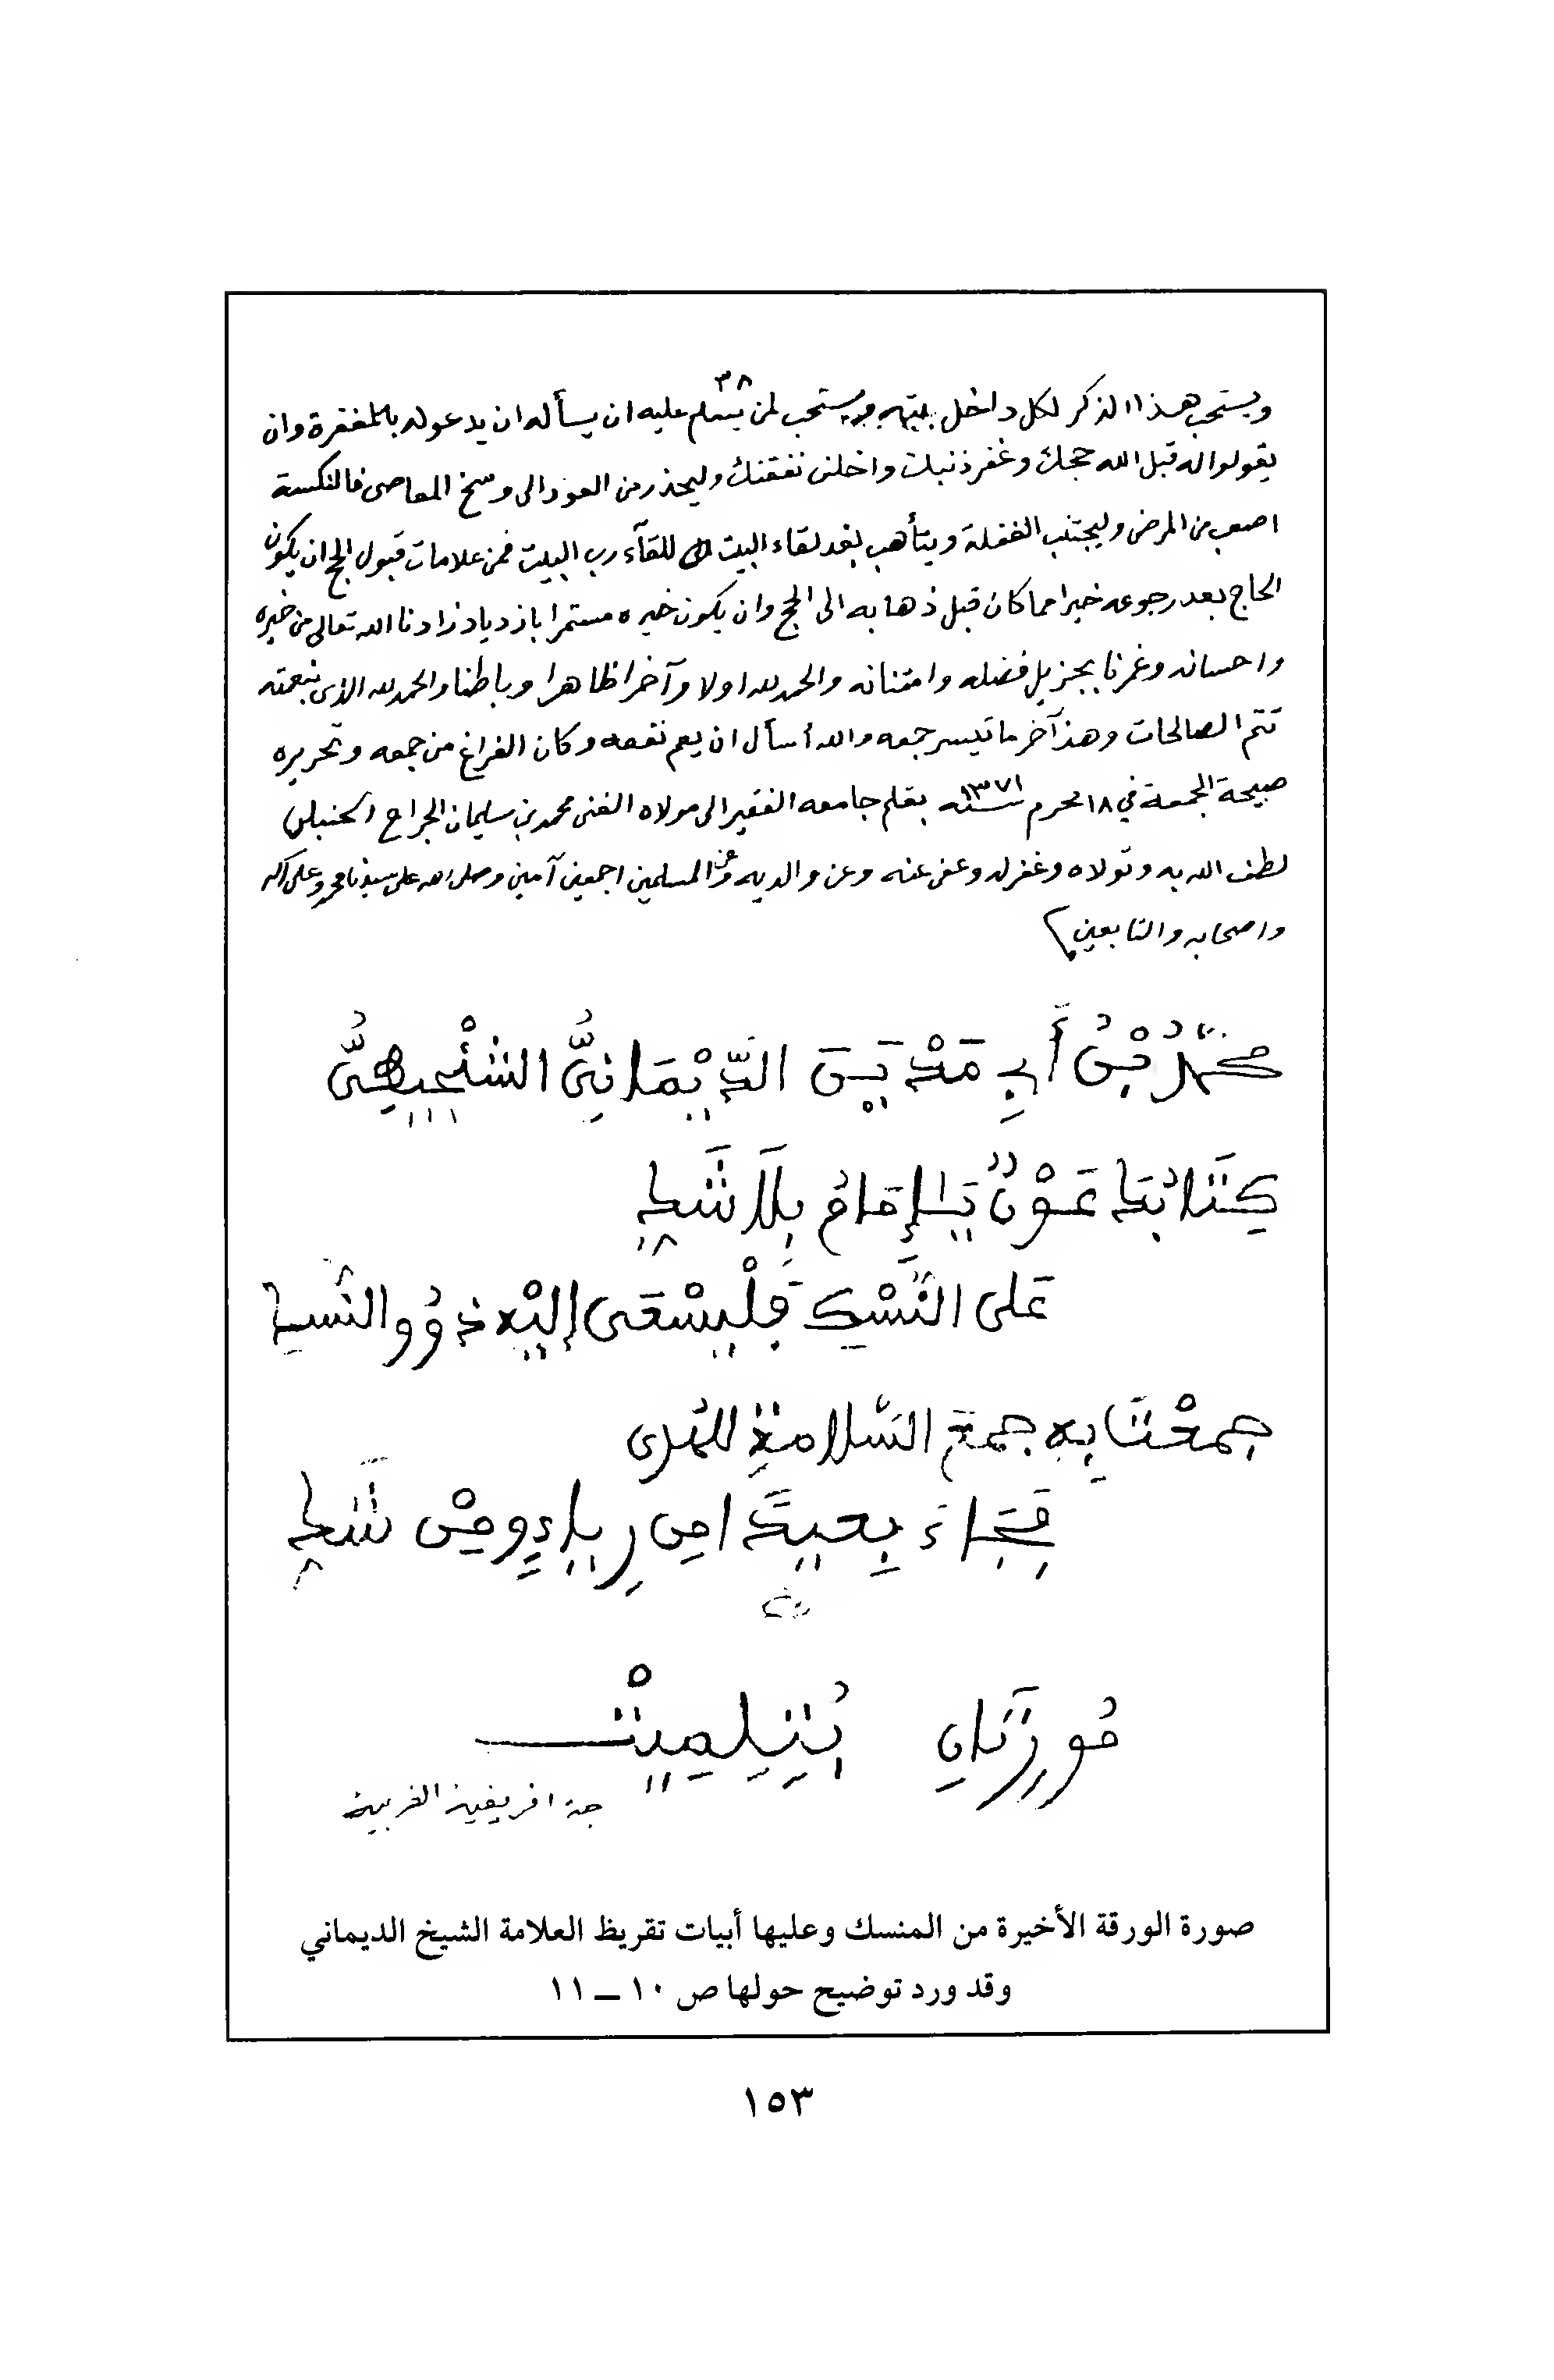 ٣٨
ويستحب هذا الذكر لكل داخل بيته ويستحب لمن يسلم عليه ان يسأله ان يدعو له بالمغفرة وان
يقولوا له قبل الله حجك وغفر ذنبك واخلف نفقتك وليحذر من العود الى وسخ المعاصى فالنكسة
اصعب من المرض وليجتنب الغفلة ويتأهب بعد لقاء البيت للقآء رب البيت فمن علامات قبول الحج ان يكون
الحاج بعد رجوعه خيرا مما كان قبل ذهابه الى الحج وان يكون خيره مستمرا بازدياد زادنا الله تعالى من خيره
واحسانه وغمرنا بجزيل فضله وامتنانه والحمد لله اولا وآخرا ظاهرا وباطنا والحمد لله الذى بنعمته
تتم الصالحات وهذا آخر ما تيسر جمعه والله أسأل ان يعم نفعه وكان الفراغ من جمعه وتحريره
صبيحة الجمعة في ١٨ محرم سنة ١٣٧١ بقلم جامعه الفقير الى مولاه الغنى محمد بن سليمان الجراح الحنبلى
لطف الله به وتولاه وغفر له وعفى عنه وعن والديه وعن المسلمين اجمعين آمين وصلى الله على سيدنا محمد وعلى آله
واصحابه والتابعين
محمدُ بْنُ أَبِي مَدْيَنَ الدَّيْمَانِيُّ الشِّنْجِيطِيُّ
كِتَابُكَ عَوْنٌ يَا إِمَامُ بِلَا شَكِّ
عَلى النُّسْكِ فَلْيَسْعَى إِلَيْهِ ذَوُو النُّسْكِ
جمعْتَ به جمعَ السَّلامةِ للهدى
فَجَاءَ بَعِيدًا من رِيَاءٍ وَمِنْ شَكِّ
مُورِتَانِ بُتِلِمِيتْ
جهة افريقية الغربية
صورة الورقة الأخيرة من المنسك وعليها أبيات تقريظ العلامة الشيخ الديماني
وقد ورد توضيح حولها ص ١٠ ــ ١١
١٥٣